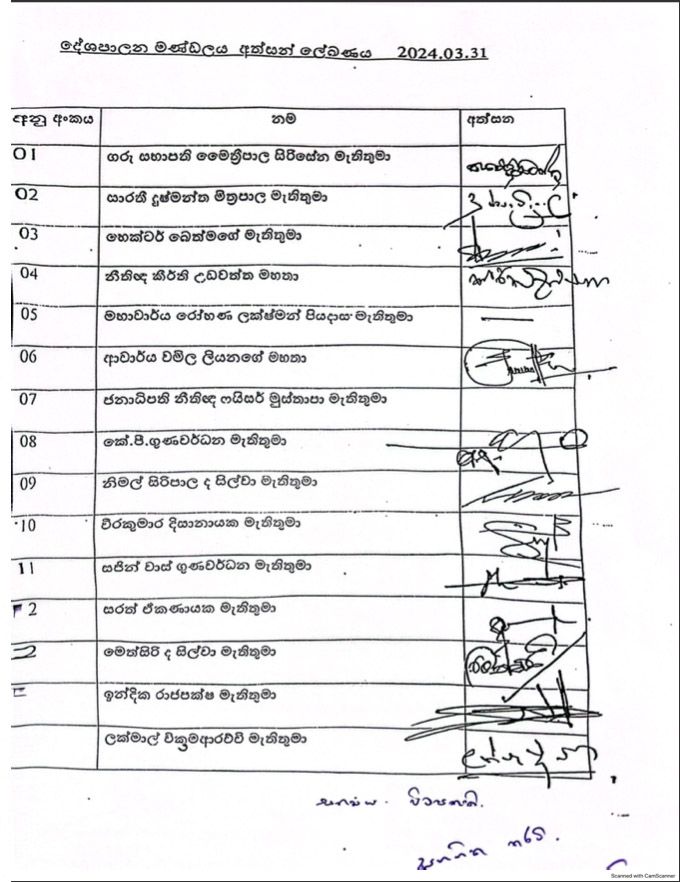 දේශපාලන මණ්ඩලය අත්සන් ලේඛණය 2024.03.31
අනු අංකය නම අත්සන
01 ගරු සභාපති මෛත්‍රීපාල සිරිසේන මැතිතුමා
02 සාරතී දුෂ්මන්ත මිත්‍රපාල මැතිතුමා
03 හෙක්ටර් බෙත්මගේ මැතිතුමා
04 නීතිඥ කීර්ති උඩවත්ත මහතා
05 මහාචාර්ය රෝහණ ලක්ෂ්මන් පියදාස මැතිතුමා
06 ආචාර්ය චමිල ලියනගේ මහතා
07 ජනාධිපති නීතිඥ ෆයිසර් මුස්තාපා මැතිතුමා
08 කේ.පී.ගුණවර්ධන මැතිතුමා
09 නිමල් සිරිපාල ද සිල්වා මැතිතුමා
10 වීරකුමාර දිසානායක මැතිතුමා
11 සජින් වාස් ගුණවර්ධන මැතිතුමා
2 සරත් ඒකණායක මැතිතුමා
මෙත්සිරි ද සිල්වා මැතිතුමා
ඉන්දික රාජපක්ෂ මැතිතුමා
ලක්මාල් වික්‍රමආරච්චි මැතිතුමා
Scanned with CamScanner